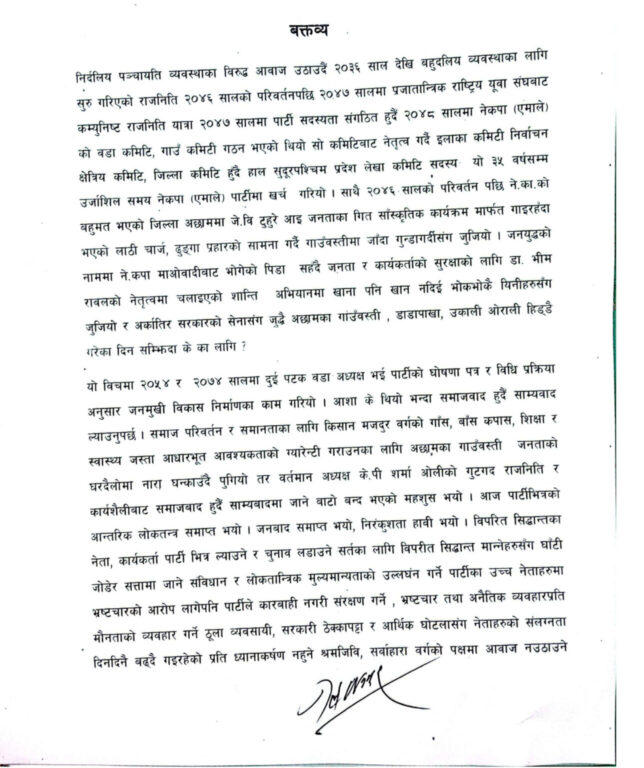 बक्तव्य
निर्दलिय पञ्चायति व्यवस्थाका विरुद्ध आबाज उठाउदैं २०३६ साल देखि बहुदलिय व्यवस्थाका लागि
सुरु गरिएको राजनिति २०४६ सालको परिवर्तनपछि २०४७ सालमा प्रजातान्त्रिक राष्ट्रिय यूबा संघबाट
कम्युनिष्ट राजनिति यात्रा २०४७ सालमा पार्टी सदस्यता संगठित हुदैं २०४८ सालमा नेकपा (एमाले)
को वडा कमिटि, गाउँ कमिटी गठन भएको थियो सो कमिटिबाट नेतृत्व गर्दै इलाका कमिटी निर्वाचन
क्षेत्रिय कमिटि, जिल्ला कमिटि हुदै हाल सुदूरपश्चिम प्रदेश लेखा कमिटि सदस्य यो ३५ वर्षसम्म
उर्जाशिल समय नेकपा (एमाले) पार्टीमा खर्च गरियो । साथै २०४६ सालको परिवर्तन पछि ने.का.को
बहुमत भएको जिल्ला अछाममा जे.वि टुहुरे आइ जनताका गित साँस्कृतिक कार्यक्रम मार्फत गाइरहंदा
भएको लाठी चार्ज, ढुङ्गा प्रहारको सामना गर्दै गाउँवस्तीमा जाँदा गुन्डागर्दीसंग जुजियो । जनयुद्धको
नाममा ने.कपा माओवादीबाट भोगेको पिडा सहदै जनता र कार्यकर्ताको सुरक्षाको लागि डा. भीम
रावलको नेतृत्वमा चलाइएको शान्ति अभियानमा खाना पनि खान नदिई भोकभोकै यिनीहरुसंग
जुजियो र अर्कातिर सरकारको सेनासंग जुद्धै अछामका गाउंवस्ती , डाडापाखा, उकाली ओराली हिड्डै
गरेका दिन सम्झिदा के का लागि ?
यो विचमा २०५४ र २०७४ सालमा दुई पटक वडा अध्यक्ष भई पार्टीको घोषणा पत्र र विधि प्रक्रिया
अनुसार जनमुखी विकास निर्माणका काम गरियो । आशा के थियो भन्दा समाजवाद हुदैं साम्यवाद
ल्याउनुपर्छ । समाज परिवर्तन र समानताका लागि किसान मजदुर वर्गको गाँस, बाँस कपास, शिक्षा र
स्वास्थ्य जस्ता आधारभूत आवश्यकताको ग्यारेन्टी गराउनका लागि अछामका गाउंवस्ती जनताको
घरदैलोमा नारा घन्काउँदै पुगियो तर वर्तमान अध्यक्ष के.पी शर्मा ओलीको गुटगद राजनिति र
कार्यशैलीबाट समाजबाद हुदैं साम्यबादमा जाने वाटो बन्द भएको महशुस भयो । आज पार्टीभित्रको
आन्तरिक लोकतन्त्र समाप्त भयो । जनबाद समाप्त भयो, निरंकुशता हावी भयो । विपरित सिद्धान्तका
नेता, कार्यकर्ता पार्टी भित्र ल्याउने र चुनाव लडाउने सर्तका लागि विपरीत सिद्धान्त मान्नेहरुसंग घाँटी
जोडेर सत्तामा जाने संविधान र लोकतान्त्रिक मुल्यमान्यताको उल्लघंन गर्ने पार्टीका उच्च नेताहरुमा
भ्रष्टचारको आरोप लागेपनि पार्टीले कारबाही नगरी संरक्षण गर्ने , भ्रष्टचार तथा अनैतिक व्यवहारप्रति
मौनताको व्यवहार गर्ने ठूला व्यवसायी, सरकारी ठेक्कापट्टा र आर्थिक घोटलासंग नेताहरुको संलग्नता
दिनदिनै बढ्दै गइरहेको प्रति ध्यानाकर्षण नहुने श्रमजिवि, सर्वाहारा वर्गको पक्षमा आबाज नउठाउने